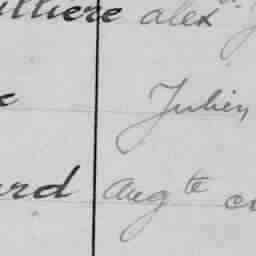 illiere alex
Julien
ard Aug te